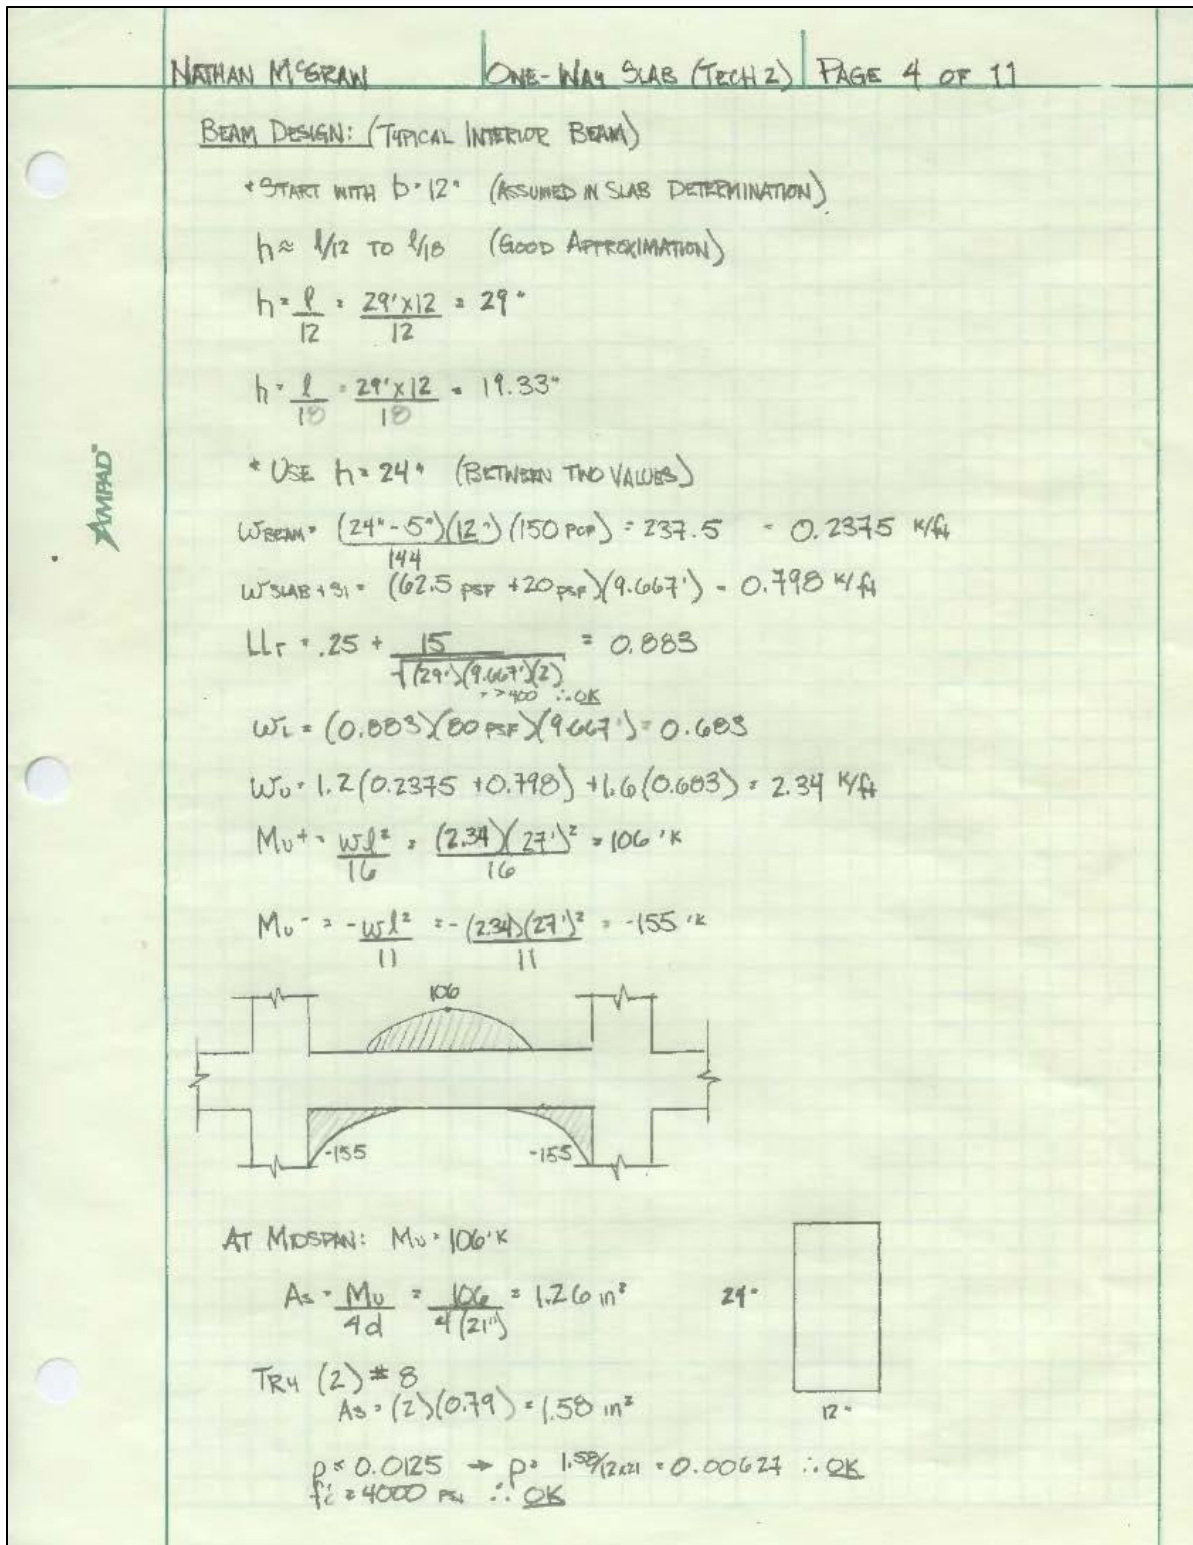 NATHAN McGRAW ONE-WAY SLAB (TECH 2) PAGE 4 OF 11
BEAM DESIGN: (TYPICAL INTERIOR BEAM)
* START WITH b = 12" (ASSUMED IN SLAB DETERMINATION)
h ≈ l/12 TO l/18 (GOOD APPROXIMATION)
h = l/12 = 29'x12/12 = 29"
h = l/18 = 29'x12/18 = 19.33"
* USE h = 24" (BETWEEN TWO VALUES)
AMPAD™
WBEAM = (24" - 5")(12")/144 (150 PCF) = 237.5 = 0.2375 K/ft
WSLAB + SI = (62.5 PSF + 20 PSF)(9.667') = 0.798 K/ft
LLr = .25 + 15/√(29')(9.667')(2) = 0.883
= >400 ∴ OK
WL = (0.883)(80 PSF)(9.667') = 0.683
WU = 1.2(0.2375 + 0.798) + 1.6(0.683) = 2.34 K/ft
MU+ = wl²/16 = (2.34)(27')²/16 = 106 'K
MU- = -wl²/11 = -(2.34)(27')²/11 = -155 'K
106
-155 -155
AT MIDSPAN: MU = 106'K
As = MU/4d = 106/4(21") = 1.26 in²
24"
TRY (2) # 8
As = (2)(0.79) = 1.58 in²
12"
ρ < 0.0125 → ρ = 1.58/12x21 = 0.00627 ∴ OK
f'c = 4000 PSI ∴ OK